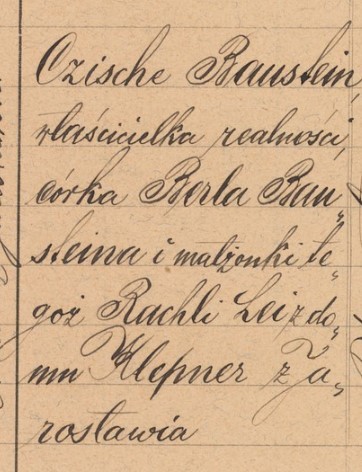 Ozische Baustein
właścicielka realności,
córka Berla Bau„
steina i małżonki te„
goż Rachli Lei z do„
mu Klepner z Ja„
rosławia